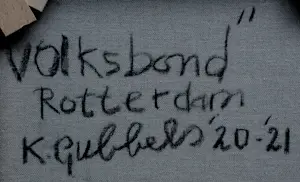 Volksbond"
Rotterdam
K. Gubbels '20-'21